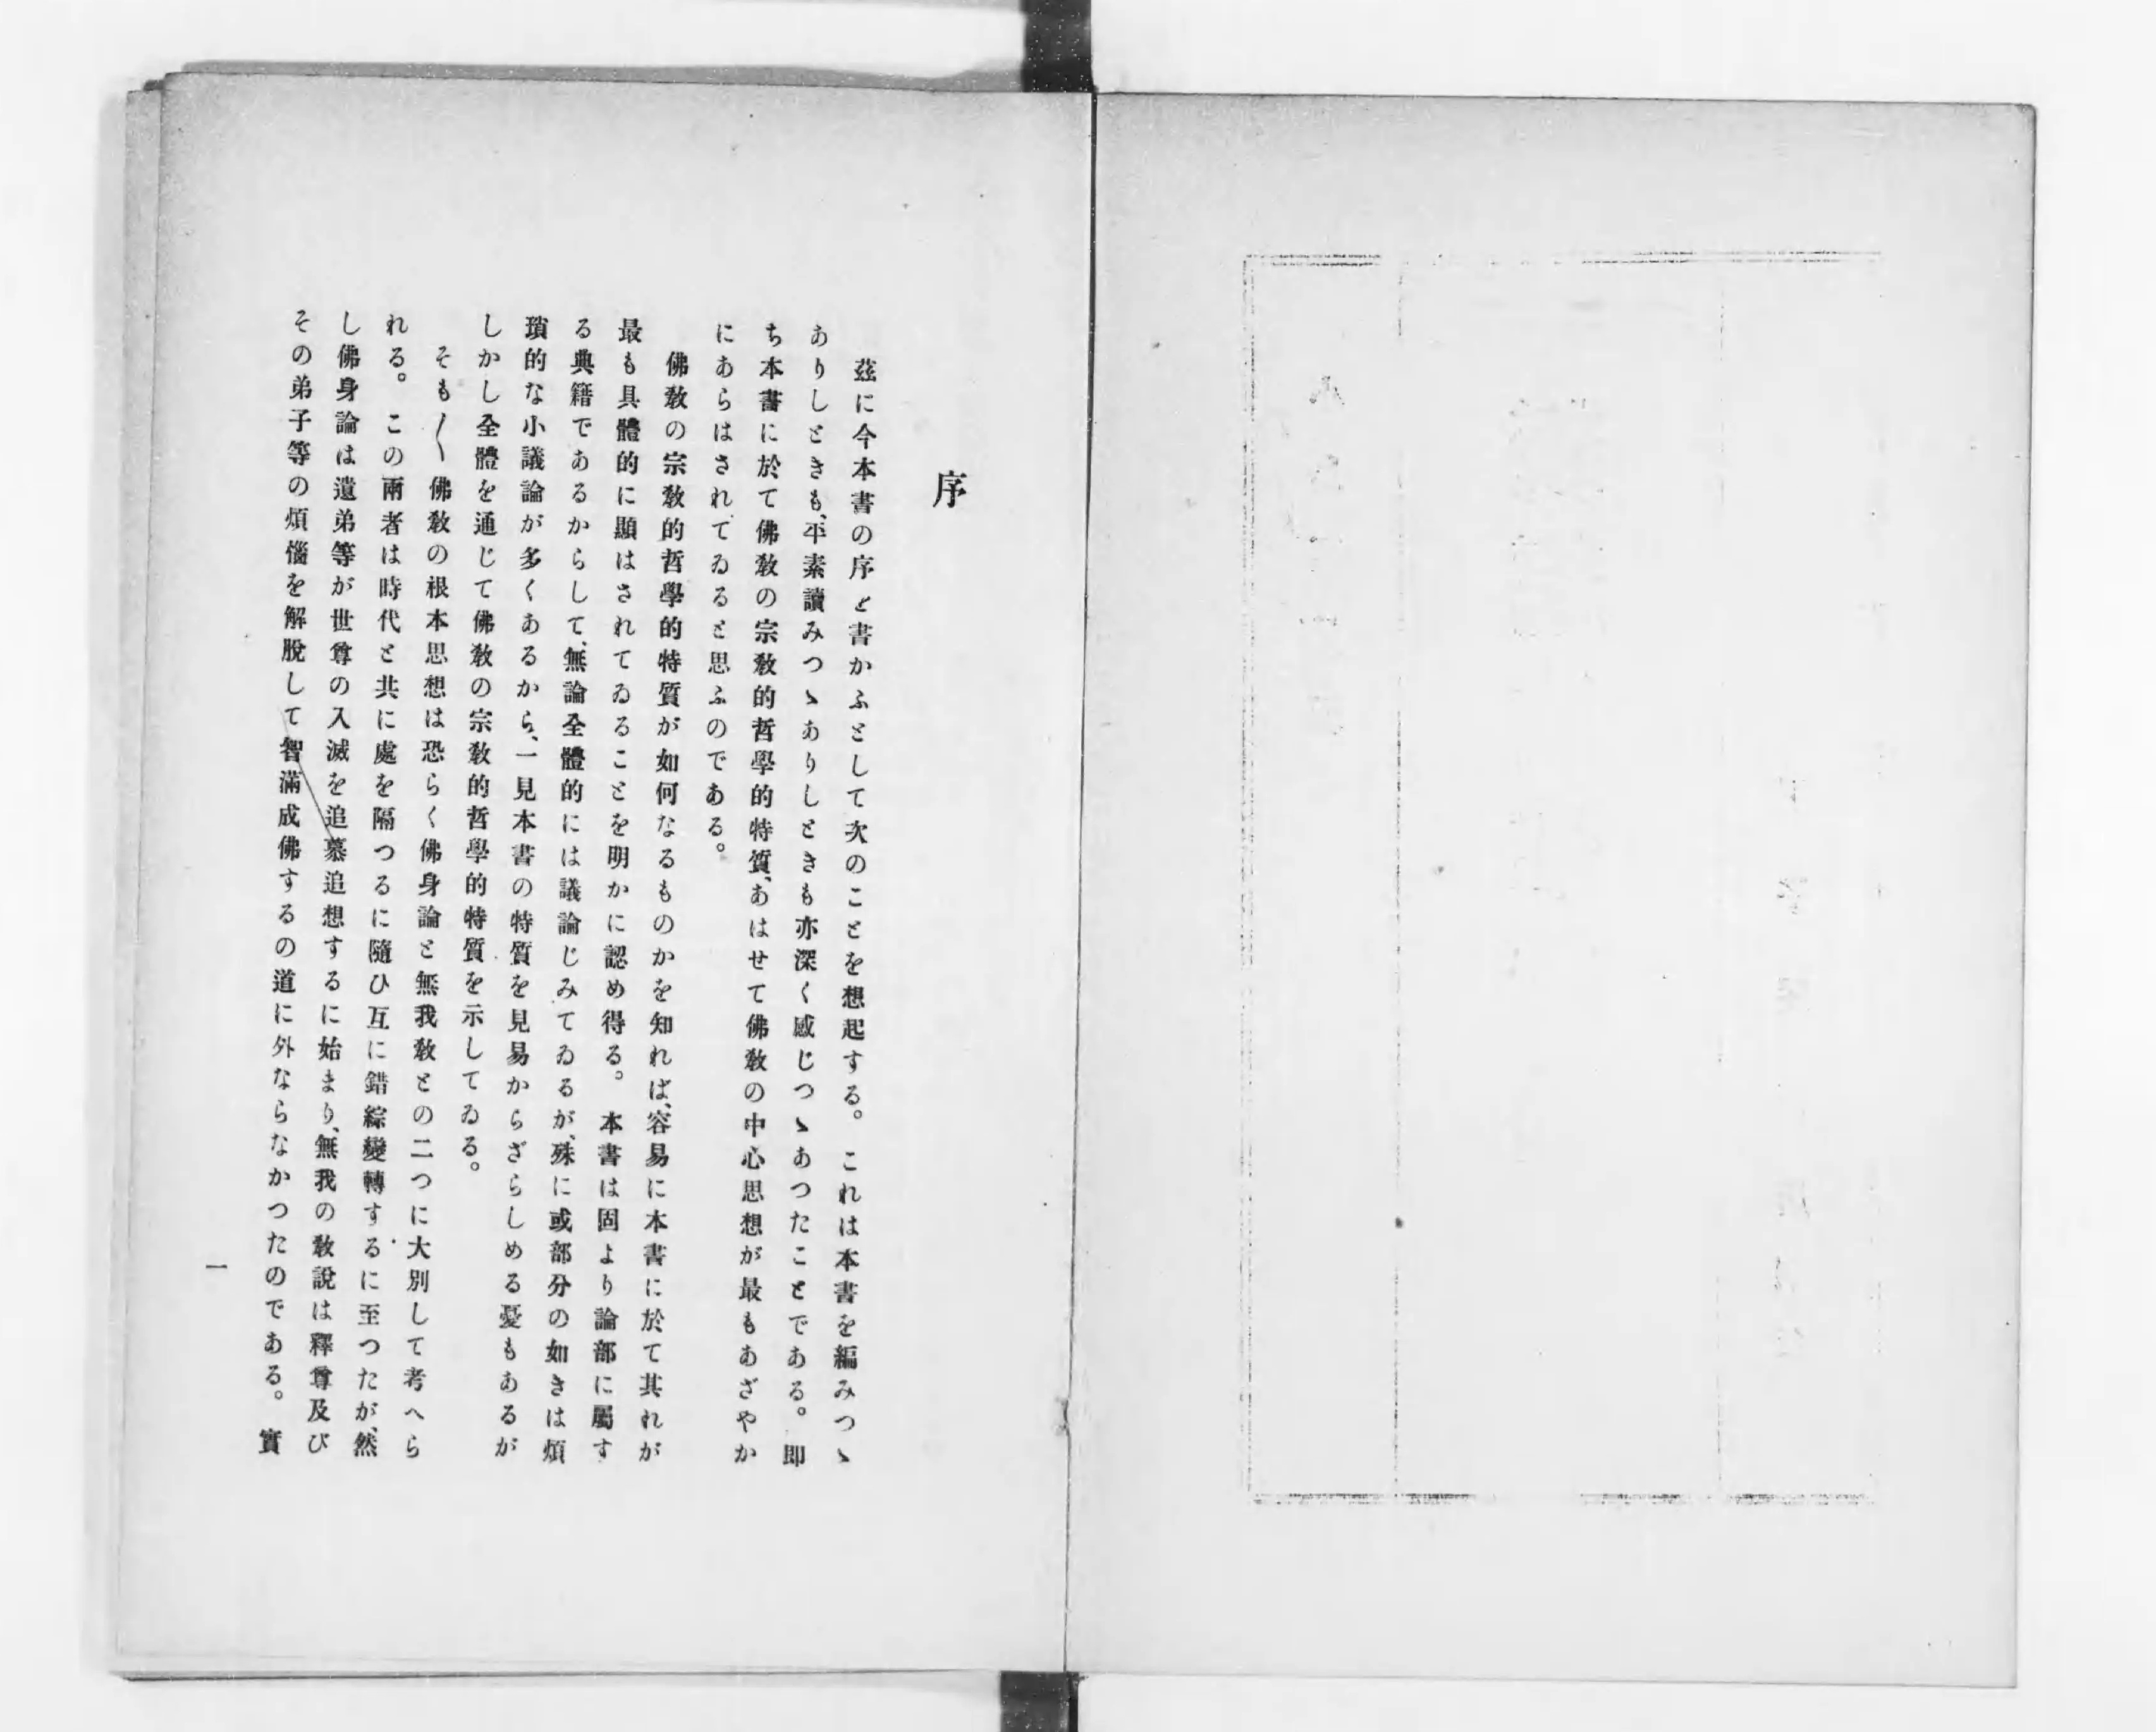 序
茲に今本書の序と書かふとして次のことを想起する。これは本書を編みつゝ
ありしときも、平素讀みつゝありしときも亦深く感じつゝあつたことである。即
ち本書に於て佛敎の宗敎的哲學的特質、あはせて佛敎の中心思想が最もあざやか
にあらはされてゐると思ふのである。
佛敎の宗敎的哲學的特質が如何なるものかを知れば、容易に本書に於て其れが
最も具體的に顯はされてゐることを明かに認め得る。本書は固より論部に屬す
る典籍であるからして、無論全體的には議論じみてゐるが、殊に或部分の如きは煩
瑣的な小議論が多くあるから、一見本書の特質を見易からざらしめる憂もあるが
しかし全體を通じて佛敎の宗敎的哲學的特質を示してゐる。
そも〳〵佛敎の根本思想は恐らく佛身論と無我敎との二つに大別して考へら
れる。この兩者は時代と共に處を隔つるに隨ひ互に錯綜變轉するに至つたが、然
し佛身論は遺弟等が世尊の入滅を追慕追想するに始まり、無我の敎說は釋尊及び
その弟子等の煩惱を解脫して智滿成佛するの道に外ならなかつたのである。實
一